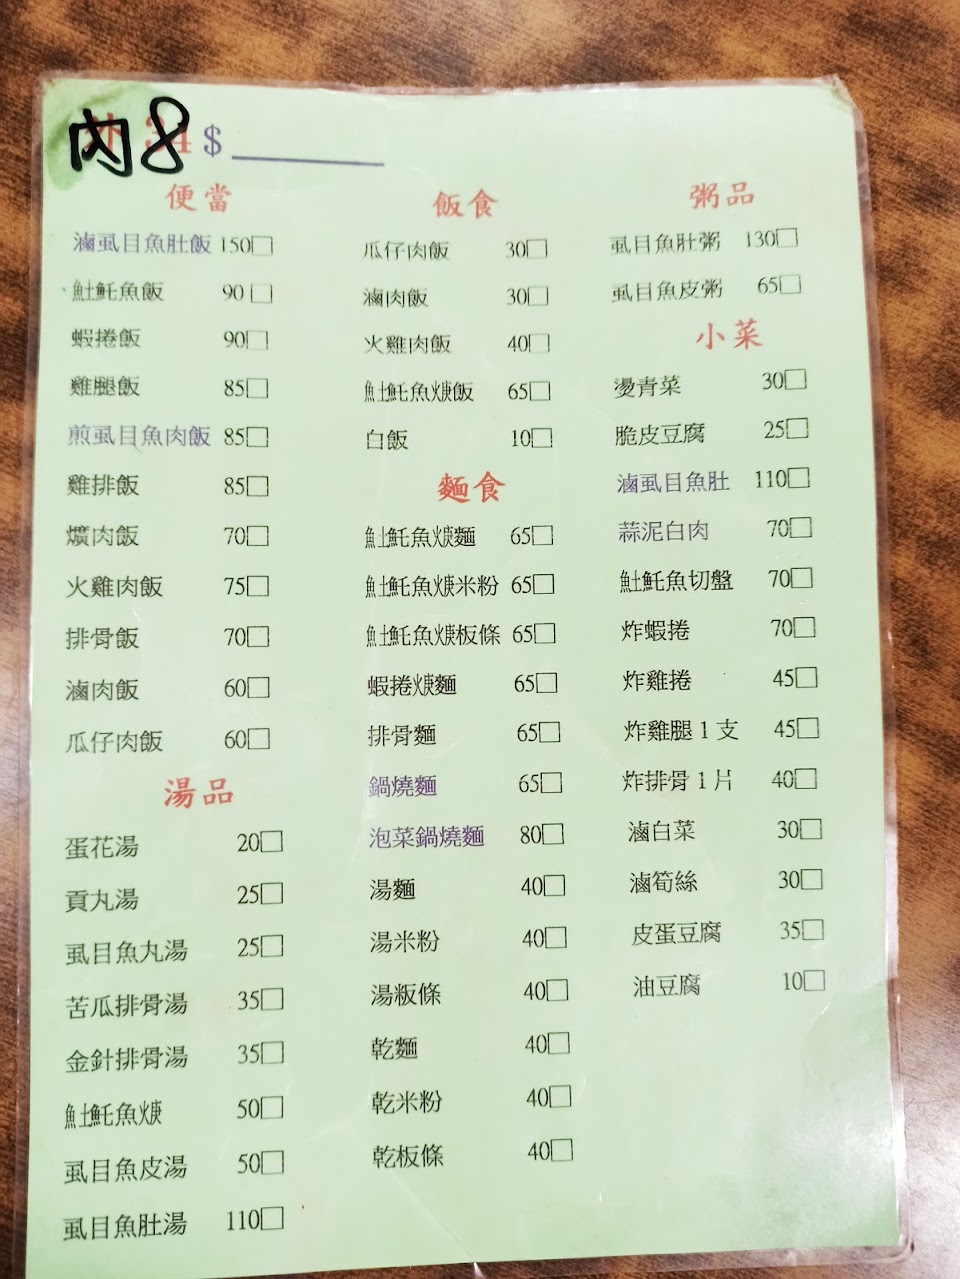 內8 $
便當
滷虱目魚肚飯 150□
魠魚飯 90□
蝦捲飯 90□
雞腿飯 85□
煎虱目魚肉飯 85□
雞排飯 85□
爌肉飯 70□
火雞肉飯 75□
排骨飯 70□
滷肉飯 60□
瓜仔肉飯 60□
湯品
蛋花湯 20□
貢丸湯 25□
虱目魚丸湯 25□
苦瓜排骨湯 35□
金針排骨湯 35□
魠魚焿 50□
虱目魚皮湯 50□
虱目魚肚湯 110□
飯食
瓜仔肉飯 30□
滷肉飯 30□
火雞肉飯 40□
魠魚焿飯 65□
白飯 10□
麵食
魠魚焿麵 65□
魠魚焿米粉 65□
魠魚焿板條 65□
蝦捲焿麵 65□
排骨麵 65□
鍋燒麵 65□
泡菜鍋燒麵 80□
湯麵 40□
湯米粉 40□
湯粄條 40□
乾麵 40□
乾米粉 40□
乾板條 40□
粥品
虱目魚肚粥 130□
虱目魚皮粥 65□
小菜
燙青菜 30□
脆皮豆腐 25□
滷虱目魚肚 110□
蒜泥白肉 70□
魠魚切盤 70□
炸蝦捲 70□
炸雞捲 45□
炸雞腿1支 45□
炸排骨1片 40□
滷白菜 30□
滷筍絲 30□
皮蛋豆腐 35□
油豆腐 10□